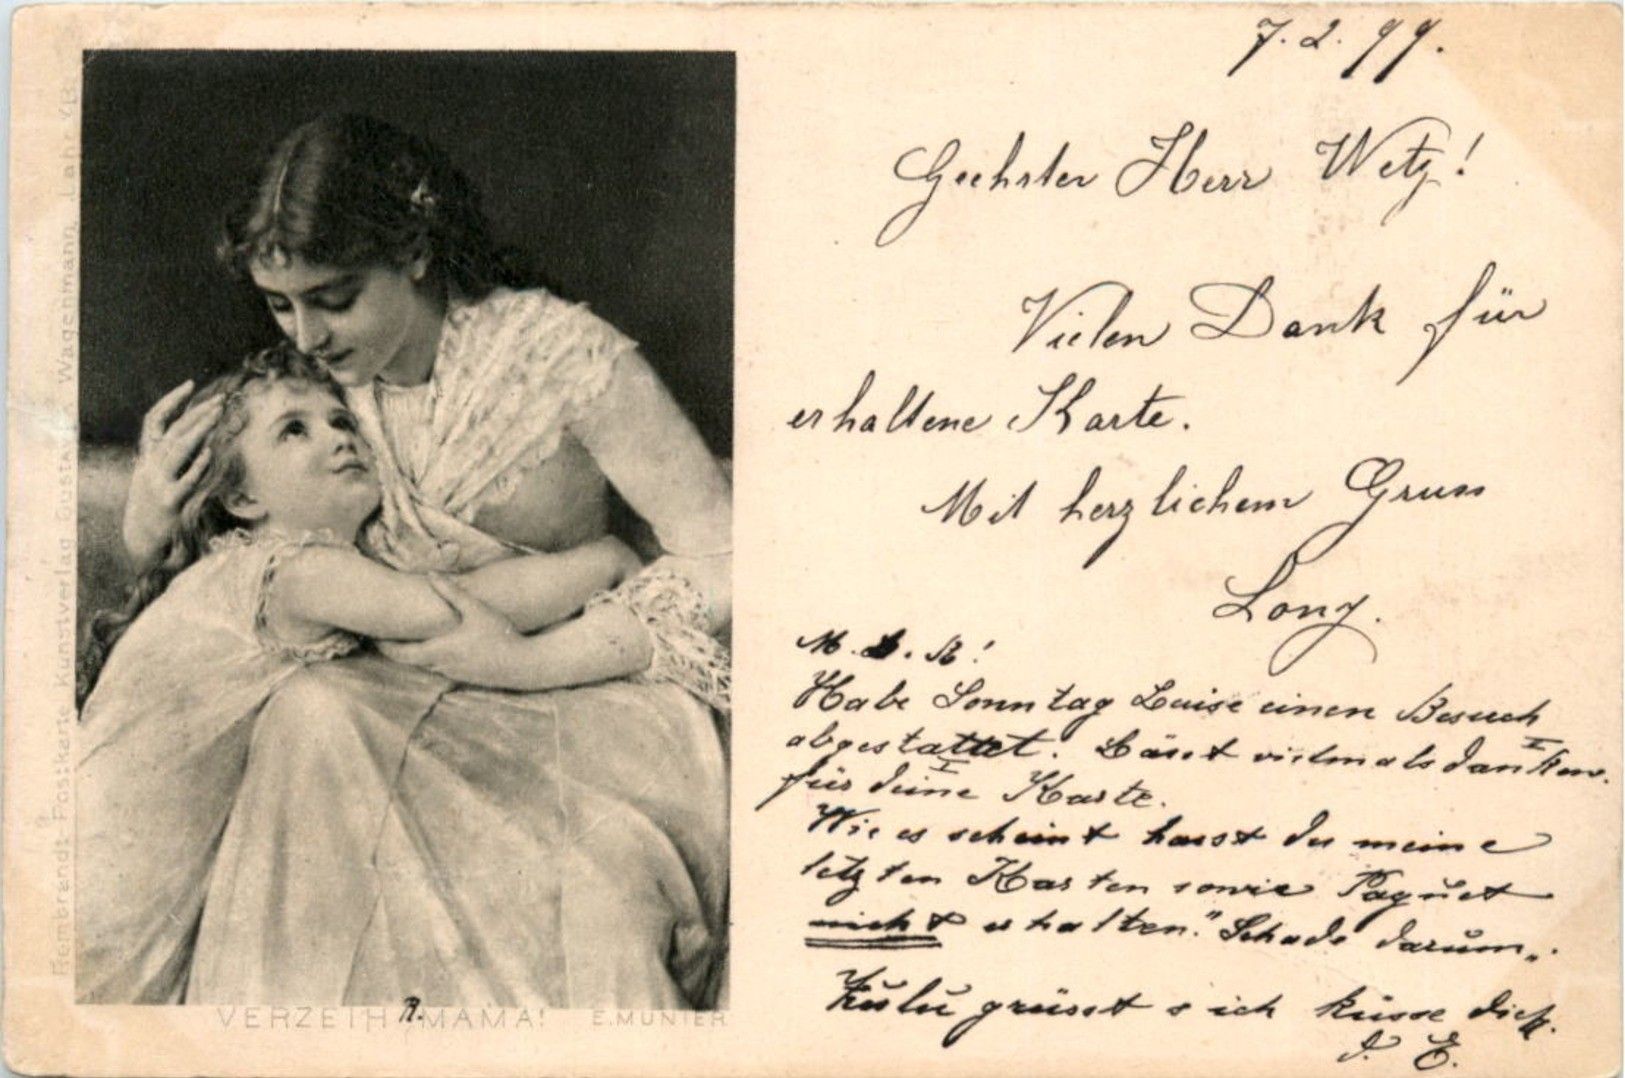 7.2.99.
Geehrter Herr Wetz!
Vielen Dank für
erhaltene Karte.
Mit herzlichem Gruss
Lony.
M. L. K!
Habe Sonntag Luise einen Besuch
abgestattet. Lässt vielmals danken II
für deine I Karte.
Wie es scheint hasst du meine
letzten Karten sowie Paquet
nicht erhalten." Schade darum„.
grüsst & ich küsse dich.
D. E.
VERZEIH R. MAMA! E. MUNIER
Rembrandt-Postkarte Kunstverlag Gustav Wagenmann, Lahr i/B.